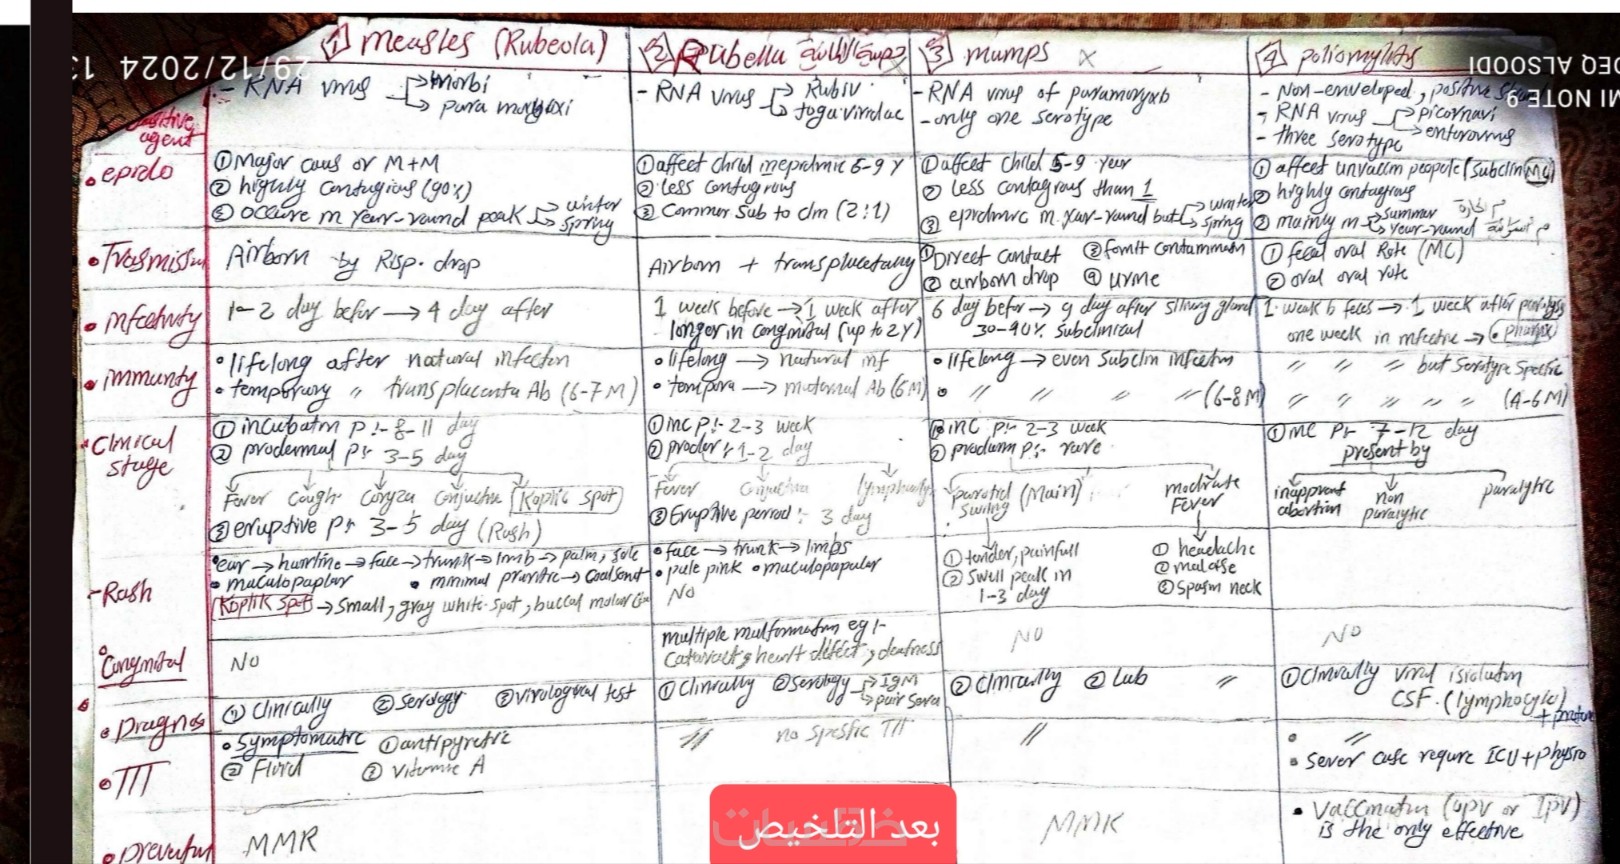 29/12/2024 13
DEQ ALSOODI
MI NOTE 9
1 measles (Rubeola)
2 Rubella
3 mumps
4 poliomylitis
agent
- RNA virus → morbi
→ para
- RNA virus → Rubiv
→ togaviridae
- RNA virus of
- only one serotype
- Non-enveloped, positive
- RNA virus → picornavi
→ enterovirus
- three serotype
• epido
① Major caus or M+M
② highly contagious (90%)
③ occure in year-round peak → winter
→ spring
① affect child inepidmic 5-9 y
② less contagious
③ Common sub to clin (2:1)
① affect child 5-9 year
② less contagious than 1
③ epidmic in year-round but → winter
→ spring
① affect unvaccin people (subclin MC)
② highly contagious
③ mainly in → summer
→ year-round
• Trasmissin
Airborn by Risp. drop
Airborn + transplacetally
① Direct contact ③ fomit contammation
② airborn drop ④ urine
① fecal oral Rote (MC)
② oral oral rote
• infectivity
1-2 day befor → 4 day after
1 week before → 1 week after
longer in conginital (up to 2y)
6 day befor → 9 day after gland
30-40% subclinical
1 week b feces → 1 week after
one week in infective →
• immunty
• lifelong after natural infection
• temporary " transplacenta Ab (6-7 M)
• lifelong → natural inf
• tempora → maternal Ab (6 M)
• lifelong → even subclin infection
• " " " " (6-8 M)
" " " but serotype specific
" " " " " (4-6 M)
• Clinical
stage
① incubation P :- 8-11 day
② prodermal P :- 3-5 day
Fever Cough Coryza Conjuctiv Koplic spot
③ eruptive P :- 3-5 day (Rash)
① inc P :- 2-3 week
② proder :- 1-2 day
Fever
③ Eruptive period :- 3 day
① inc P :- 2-3 week
② prodrom P :- rare
parotid (Main)
swiling
modrate
Fever
① tender, painfull
② swell peak in
1-3 day
① headache
② malaise
③ spasm neck
① inc P :- 7-12 day
present by
inapprent
abortion
non
paralytic
paralytic
- Rash
• ear → hairline → face → trunk → limb → palm, sole
• maculopaplar • minimal
Koplik spot → small, gray white spot, buccal molar
• face → trunk → limps
• pale pink • maculopapular
No
• Conginital
No
multiple malformation eg :-
cataract, heart defect, deafness
NO
NO
• Diagnos
① Clinically ② serology ③ virological test
① Clinically ② serology → IGM
→ pair sera
① Clinically ② Lab
"
① Clinically viral isolation
CSF. (lymphocytic)
• TTT
• symptomatic ① antipyretic
② Fluid ③ vitamie A
" no spesfic TTT
"
• "
• sever case requre ICU + physio
• prevention
MMR
MMR
• vaccination (OPV or IPV)
is the only effective
بعد التلخيص